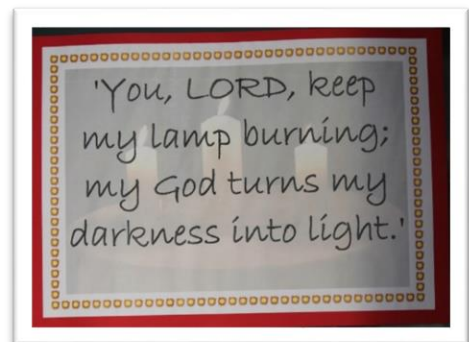 'You, LORD, keep
my lamp burning;
my God turns my
darkness into light.'